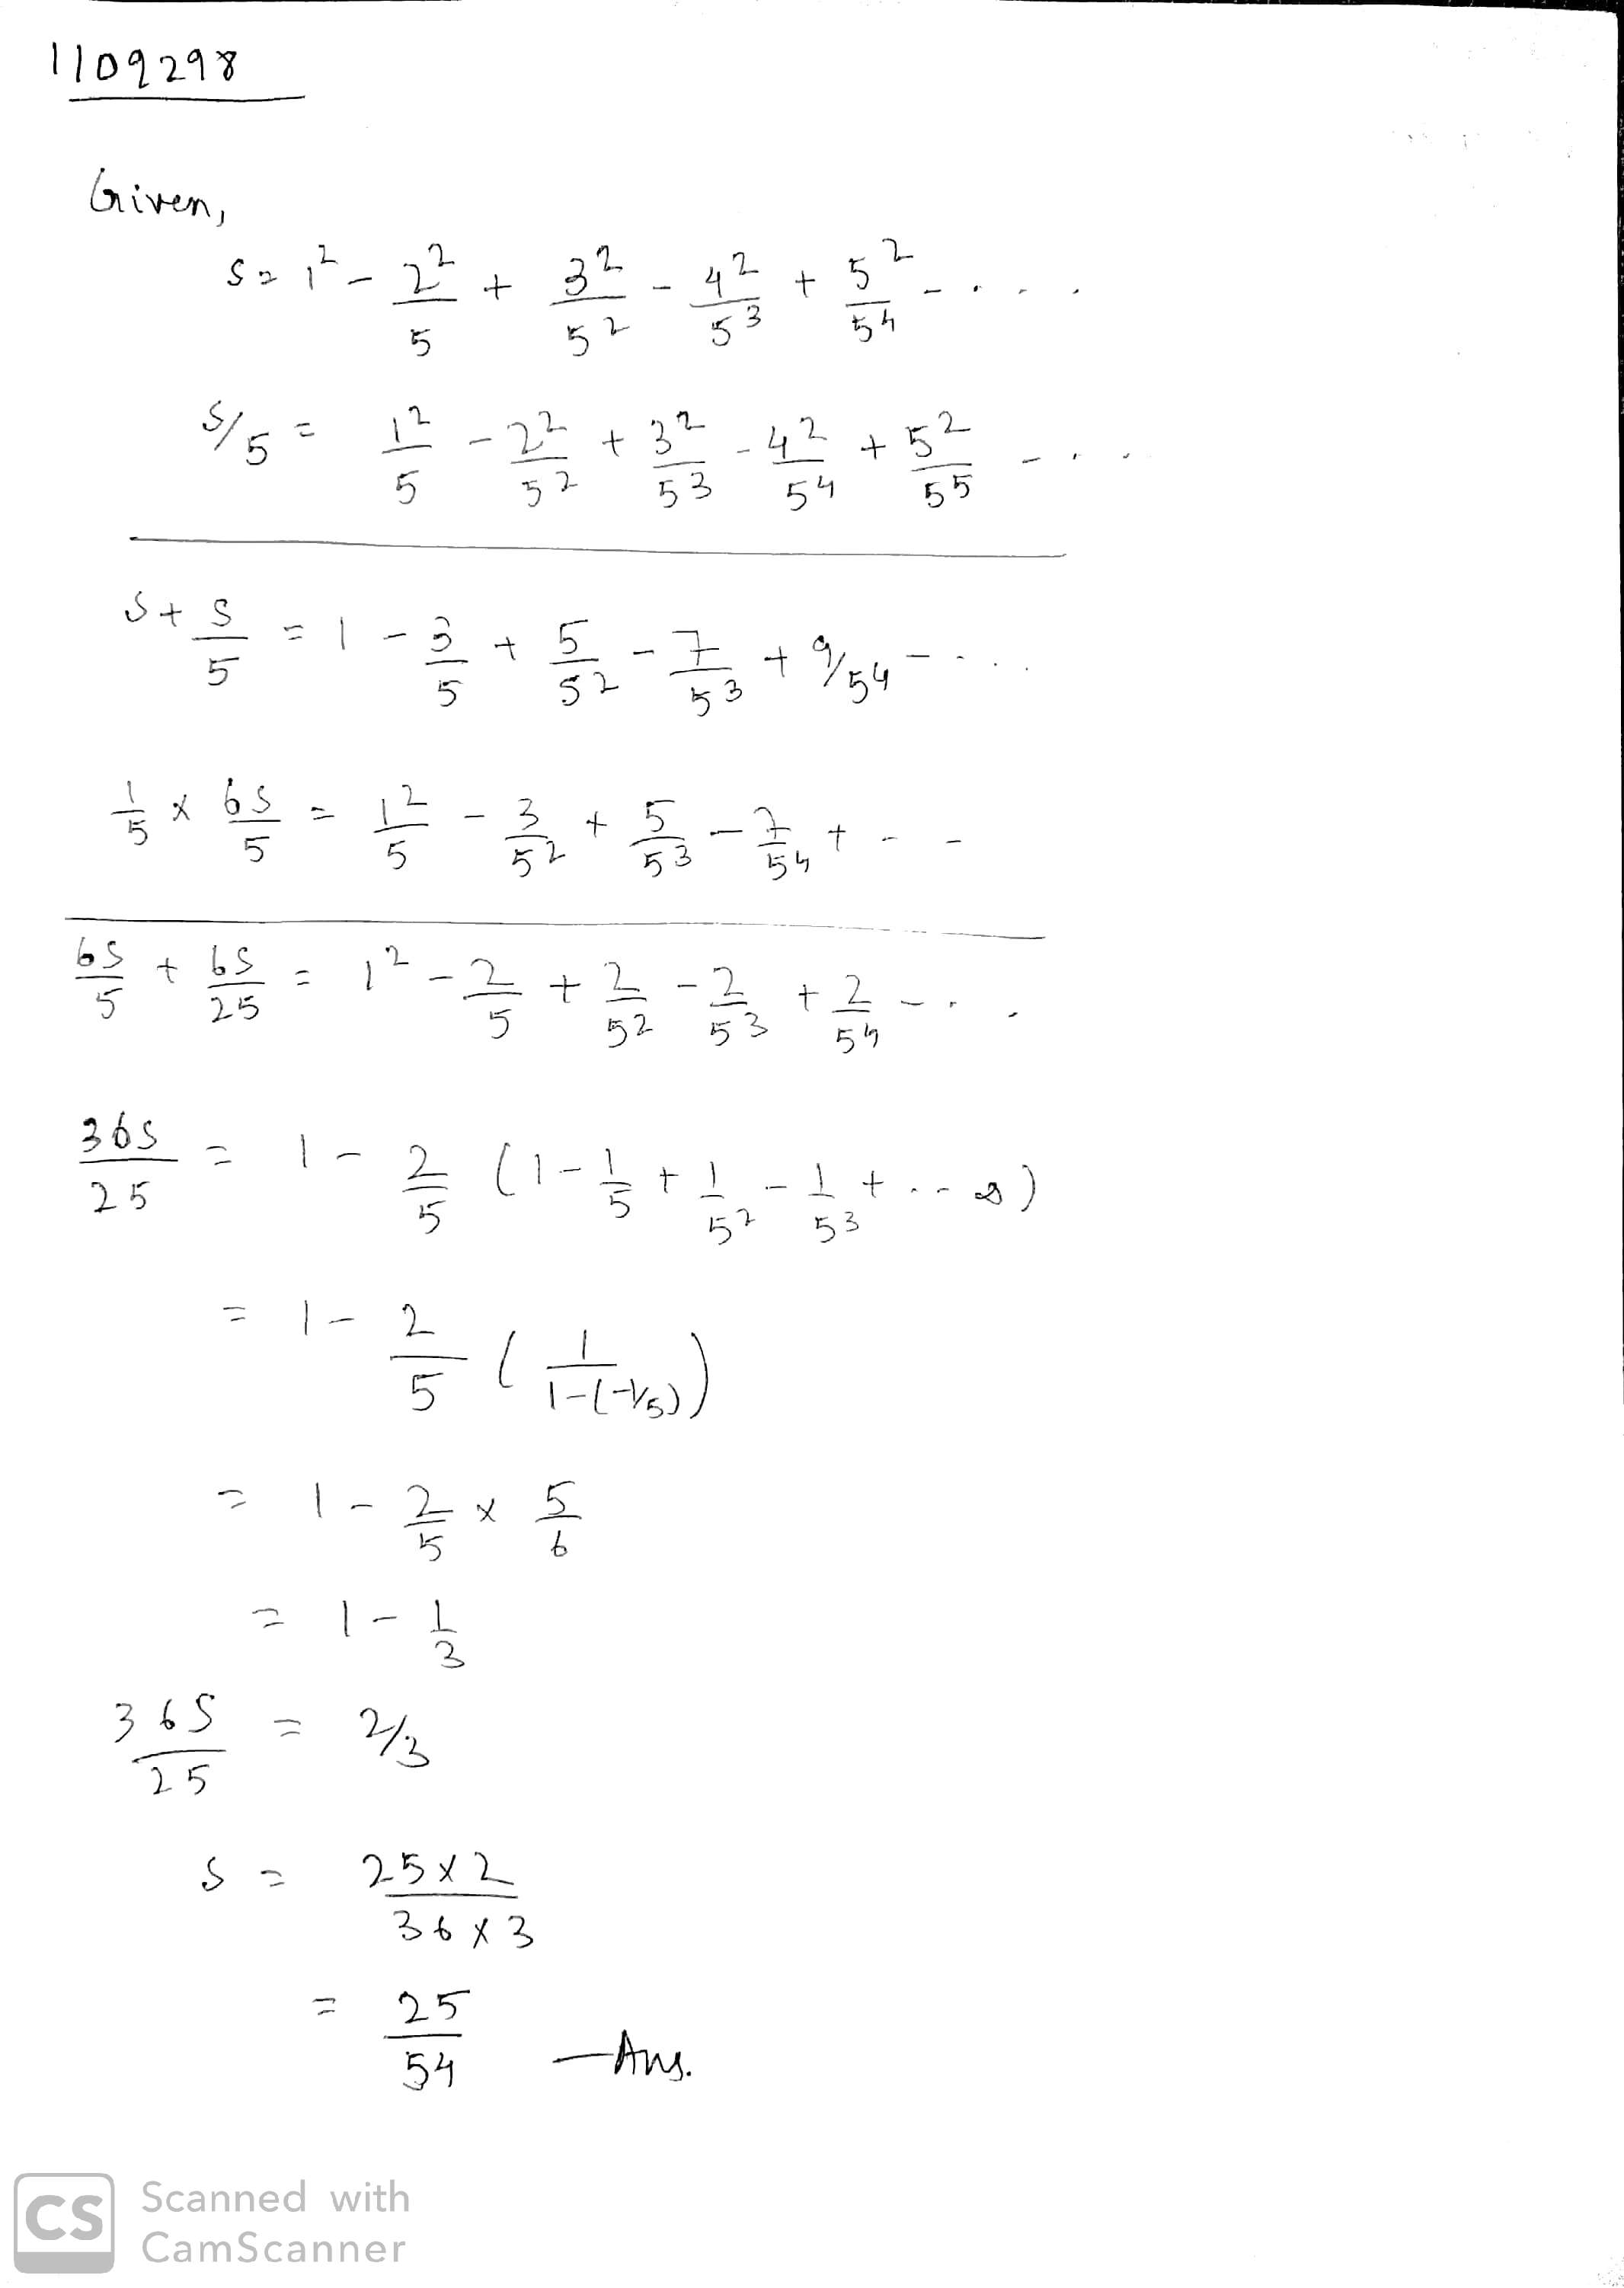 1109298
Given,
S = 1² - 2²/5 + 3²/5² - 4²/5³ + 5²/5⁴ - . . . .
S/5 = 1²/5 - 2²/5² + 3²/5³ - 4²/5⁴ + 5²/5⁵ - . . .
S + S/5 = 1 - 3/5 + 5/5² - 7/5³ + 9/5⁴ - . . .
1/5 × 6S/5 = 1²/5 - 3/5² + 5/5³ - 7/5⁴ + - -
6S/5 + 6S/25 = 1² - 2/5 + 2/5² - 2/5³ + 2/5⁴ - . . .
36S/25 = 1 - 2/5 (1 - 1/5 + 1/5² - 1/5³ + . . . ∞)
= 1 - 2/5 (1/(1-(-1/5)))
= 1 - 2/5 × 5/6
= 1 - 1/3
36S/25 = 2/3
S = 25×2/36×3
= 25/54 — Ans.
CS Scanned with
CamScanner